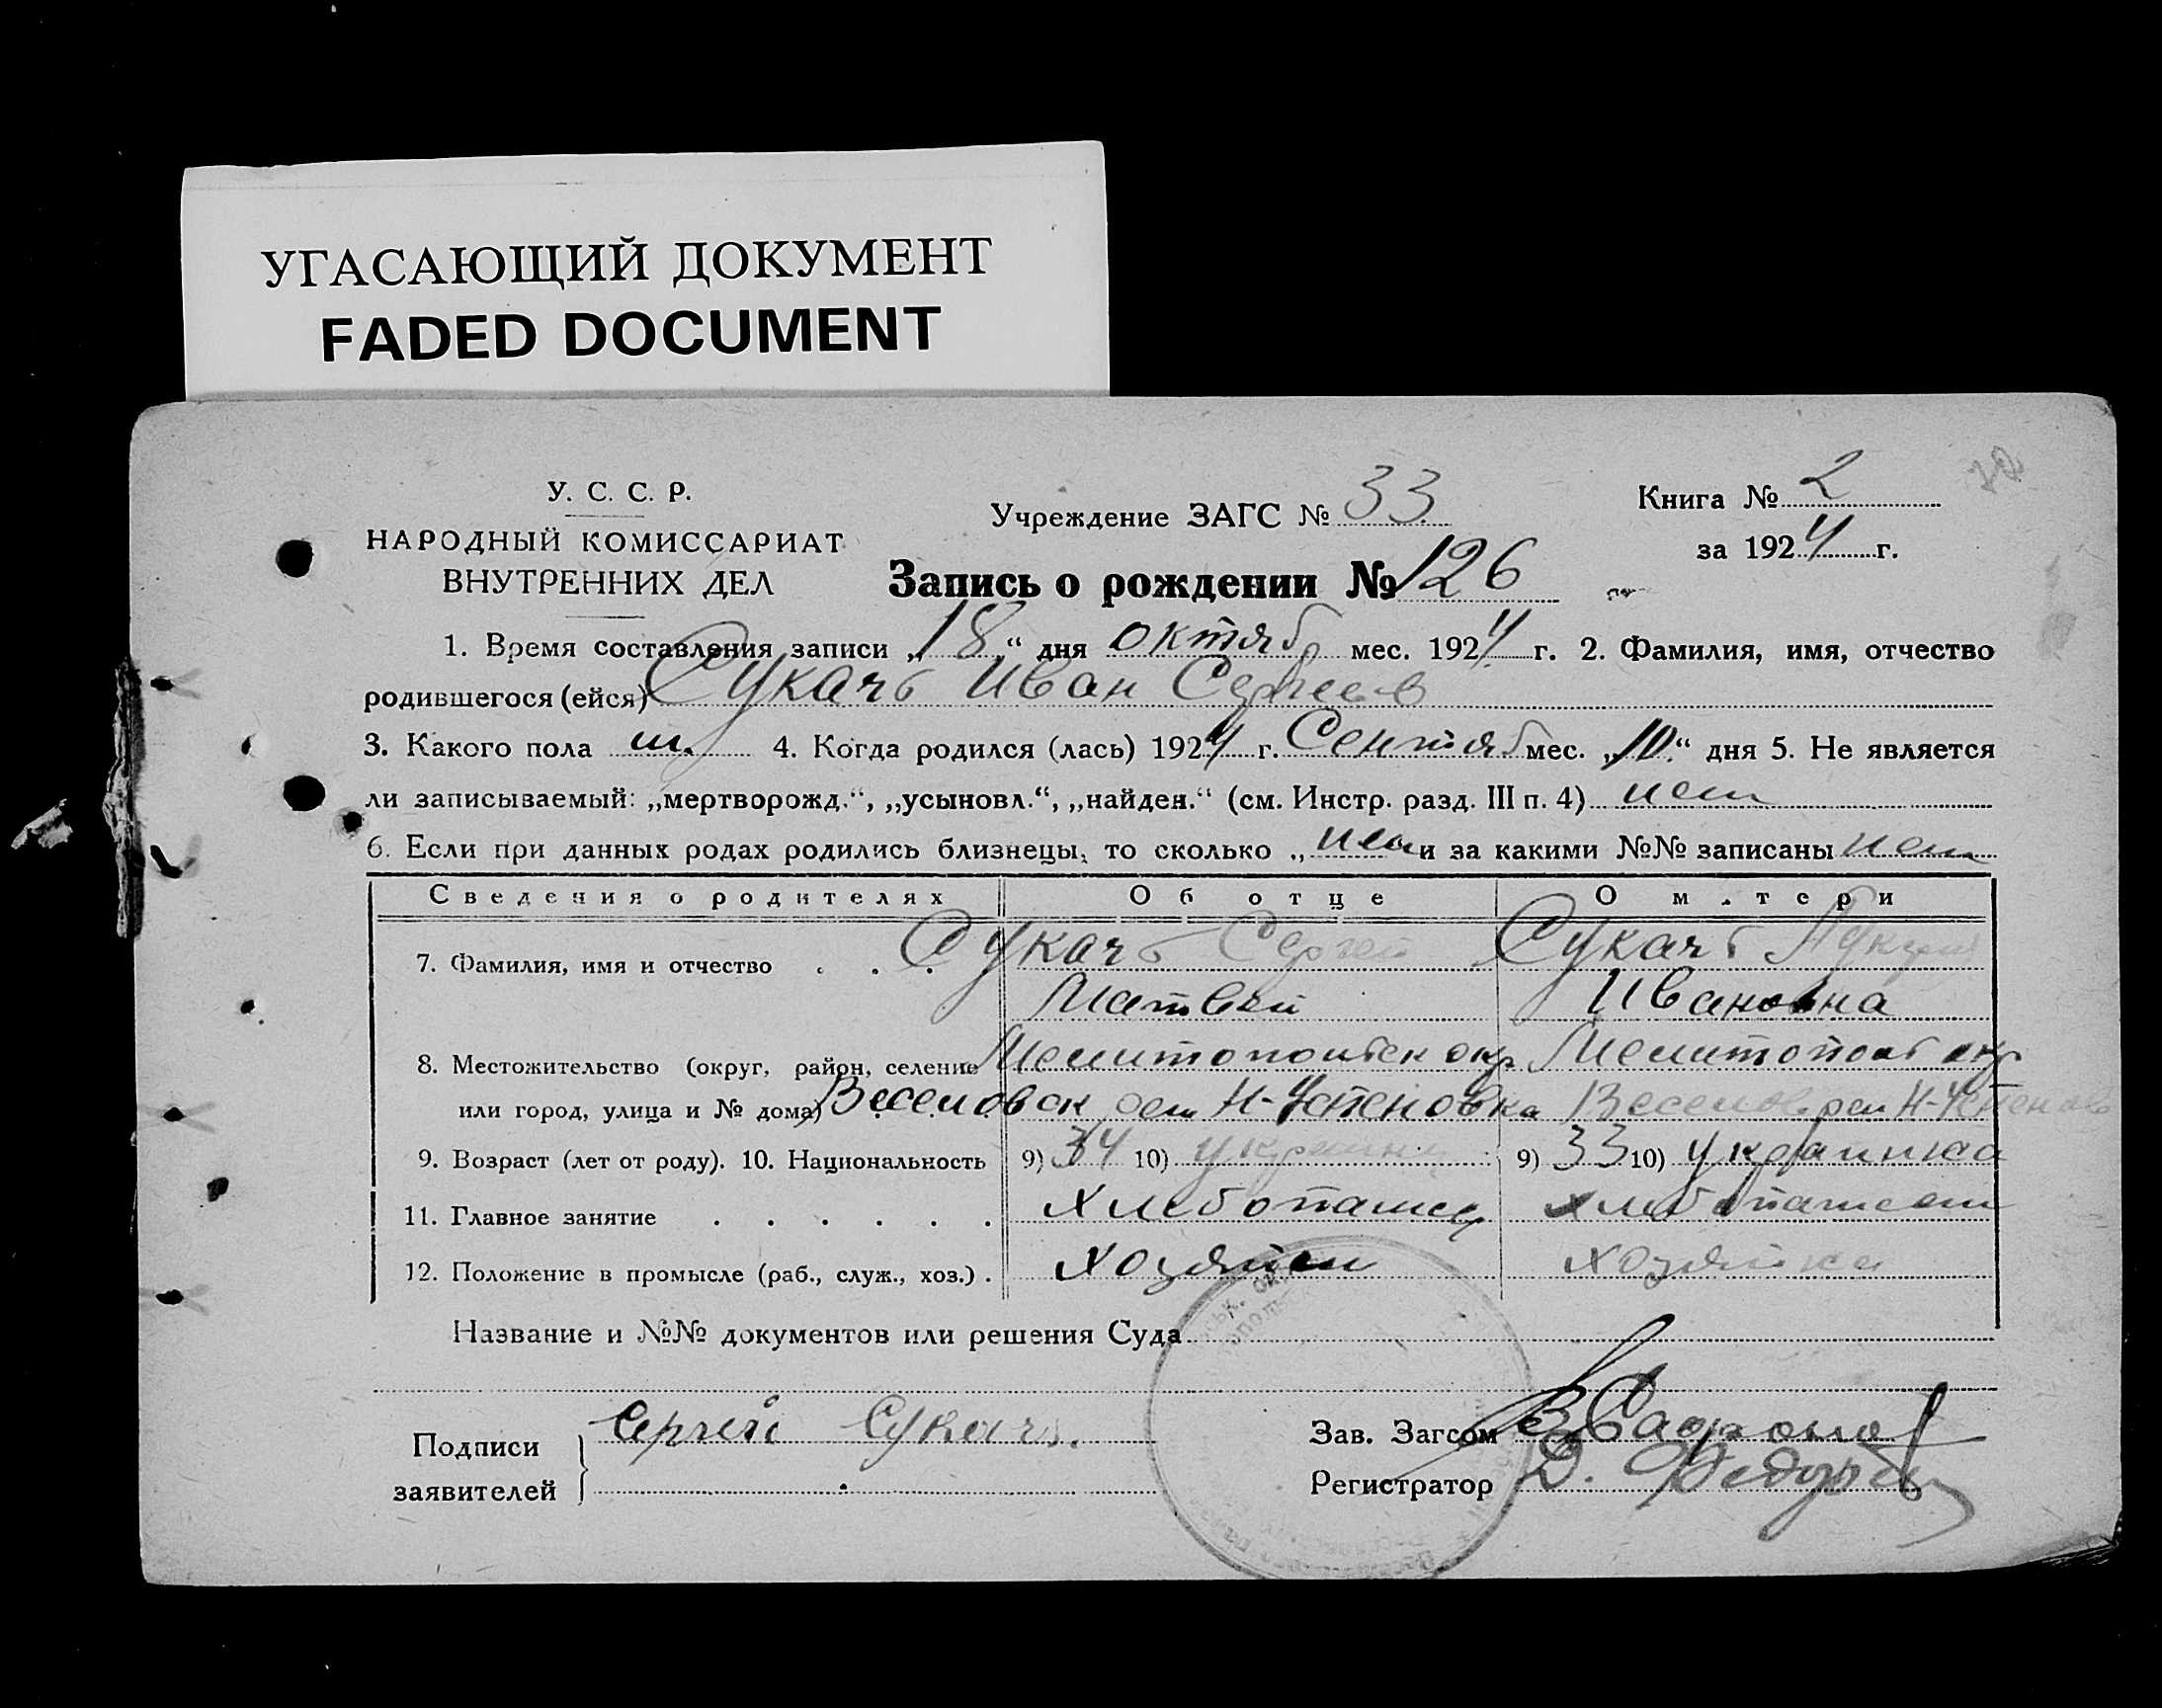 УГАСАЮЩИЙ ДОКУМЕНТ
FADED DOCUMENT
У. С. С. Р.
НАРОДНЫЙ КОМИССАРИАТ
ВНУТРЕННИХ ДЕЛ
Учреждение ЗАГС № 33
Книга № 2
за 1924 г.
Запись о рождении № 126
1. Время составления записи „18“ дня октябр мес. 1924 г. 2. Фамилия, имя, отчество
родившегося (ейся) Сукачь Иван Сергеев
3. Какого пола м. 4. Когда родился (лась) 1924 г. Сентяб мес. „10“ дня 5. Не является
ли записываемый: „мертворожд.“, „усыновл.“, „найден.“ (см. Инстр. разд. III п. 4) нет
6. Если при данных родах родились близнецы, то сколько „ нет и за какими №№ записаны нет
Сведения о родителях Об отце О м.тери
7. Фамилия, имя и отчество . . . Сукачь Сергей Сукачь
Матвей Ивановна
8. Местожительство (округ, район, селение Мелитопольск окр Мелитополь окр
или город, улица и № дома) Веселовск Н-Успеновка Веселов Н-Успенов
9. Возраст (лет от роду). 10. Национальность 9) 34 10) украин 9) 33 10) украинка
11. Главное занятие . . . . . . Хлебопашец хлебопашест
12. Положение в промысле (раб., служ., хоз.) . хозяин хозяйка
Название и №№ документов или решения Суда
Подписи
заявителей
Сергей Сукачь.
Зав. Загсом
Регистратор Д.